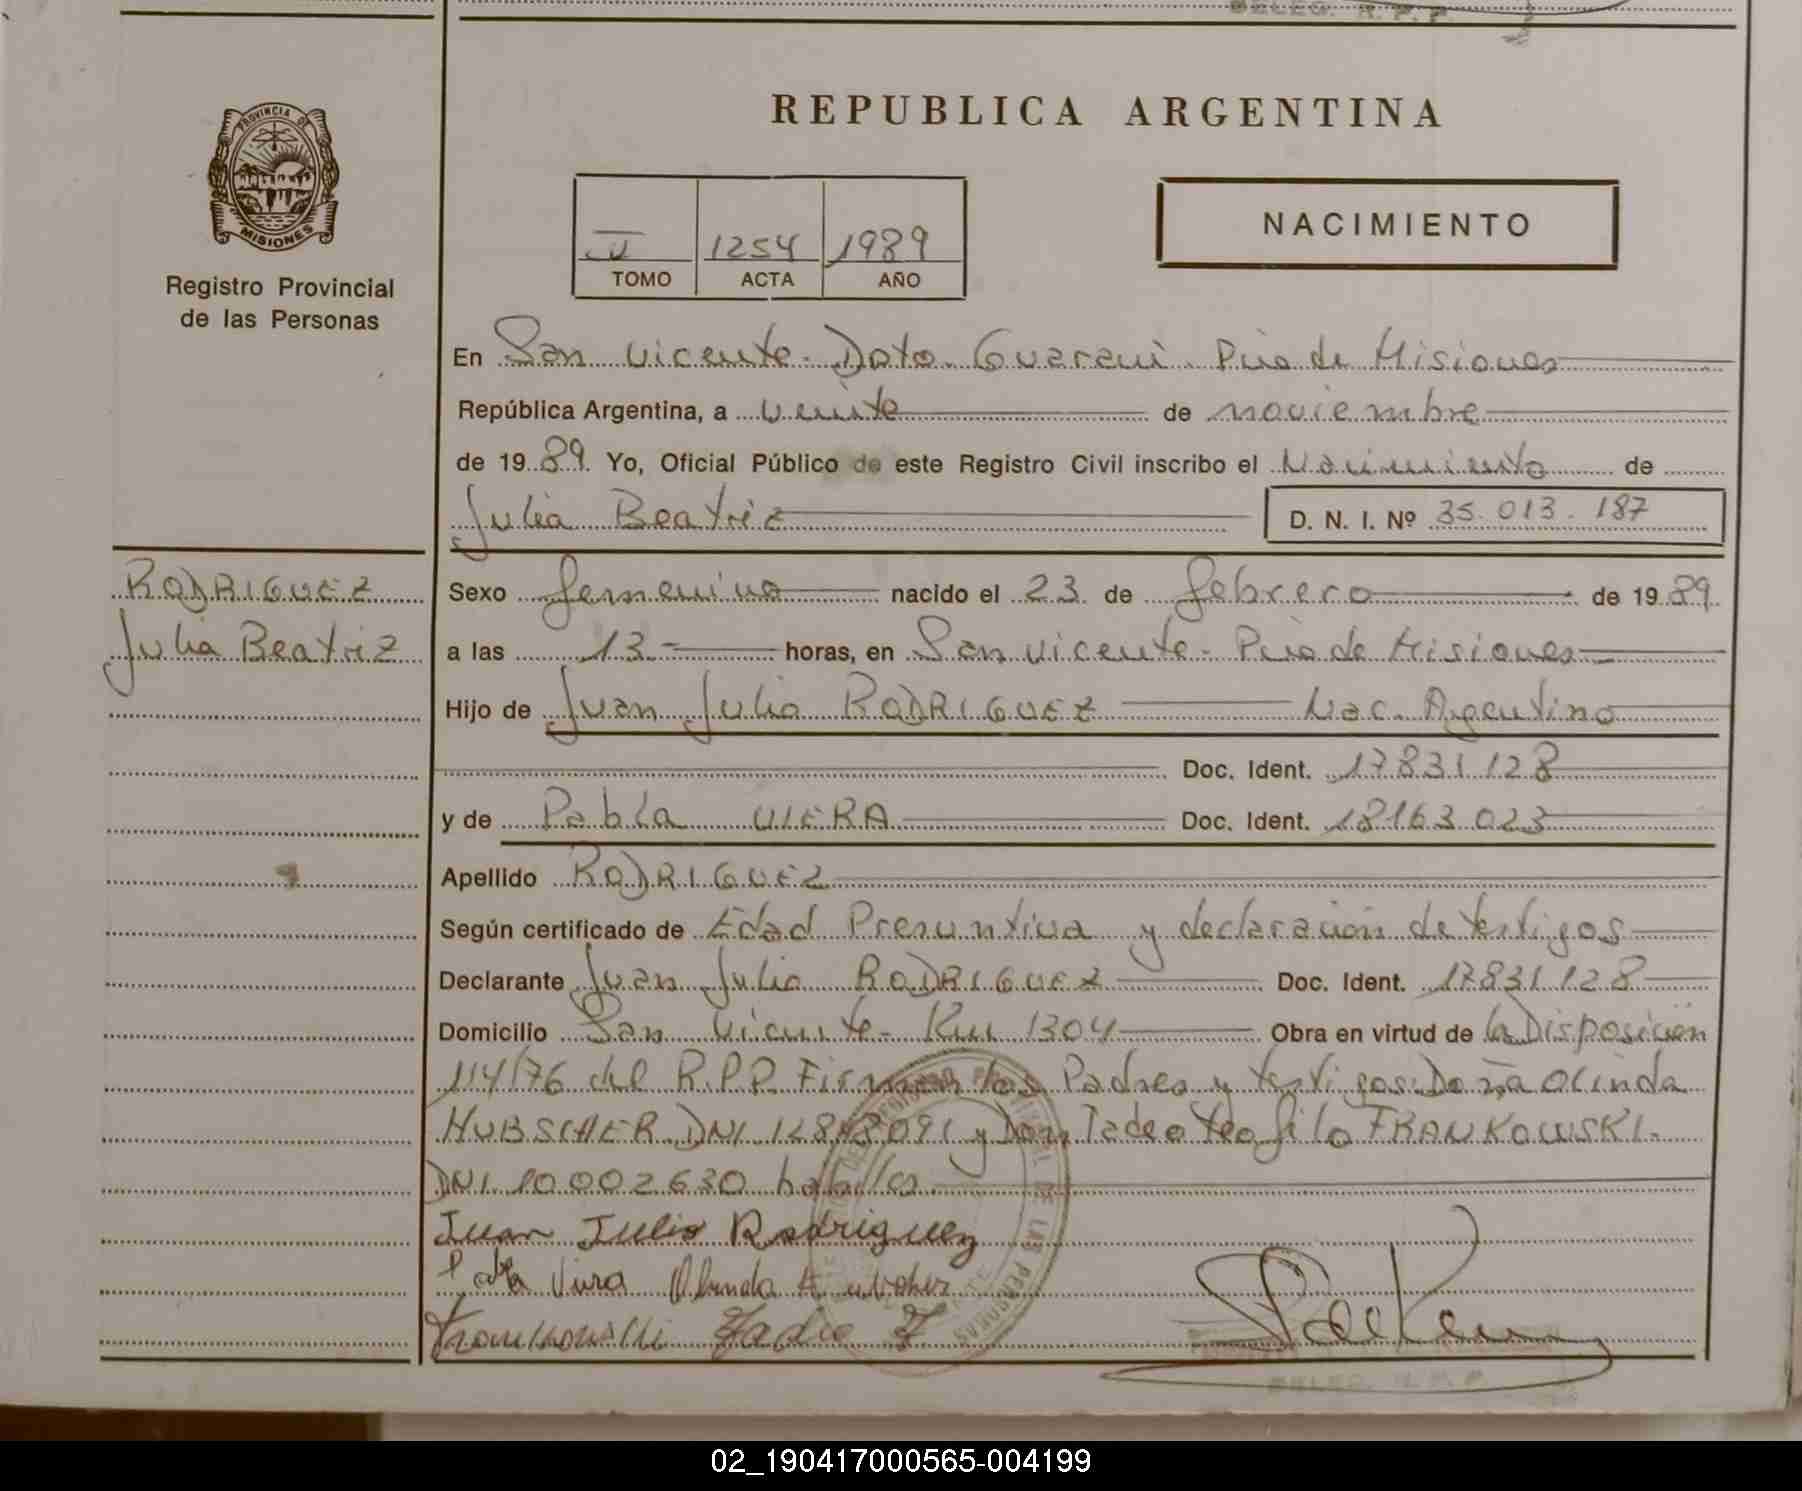 DELEG. R.P.P.
PROVINCIA DE
MISIONES
Registro Provincial
de las Personas
REPUBLICA ARGENTINA
1254 1989
TOMO ACTA AÑO
NACIMIENTO
En San Vicente - Dpto. Guaraní. Pcia de Misiones
República Argentina, a veinte de noviembre
de 1989. Yo, Oficial Público de este Registro Civil inscribo el Nacimiento de
Julia Beatriz D. N. I. Nº 35.013.187
RODRIGUEZ
Julia Beatriz
Sexo femenino nacido el 23 de febrero de 1989.
a las 13- horas, en San Vicente - Pcia de Misiones
Hijo de Juan Julio RODRIGUEZ Nac. Argentino
Doc. Ident. 17831128
y de Pabla VIERA Doc. Ident. 18163023
Apellido RODRIGUEZ
Según certificado de Edad Presuntiva y declaración de testigos
Declarante Juan Julio RODRIGUEZ Doc. Ident. 17831128
Domicilio San Vicente - Km 1304 Obra en virtud de la Disposición
114/76 del R.P.P. Firman los Padres y testigos: Doña Olinda
HUBSCHER DNI y Don Tadeo Teofilo FRANKOWSKI-
DNI 10002630 habiles.
Juan Julio Rodriguez
Olinda
Frankowski Tadeo F
DELEG. R.P.P.
02_190417000565-004199